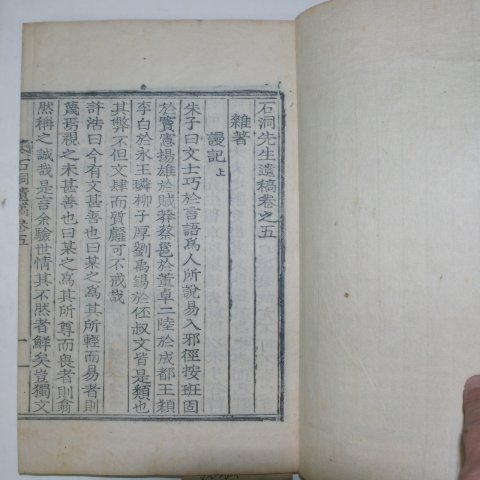 石洞先生遺稿卷之五
雜著
謾記上
朱子曰文士巧於言語爲人所說易入邪徑按班固
於竇憲揚雄於賊莽蔡邕於董卓二陸於成都王類
李白於永王璘柳子厚劉禹錫於伾叔文皆是類也
其弊不但文肆而質麤可不戒哉
許浩曰今有文甚善也曰某之爲其所輕而易者則
蔑焉視之未甚善也曰某之爲其所尊而畏者則翕
然稱之誠哉是言余驗世情其不然者鮮矣豈獨文
石洞遺稿卷五
一